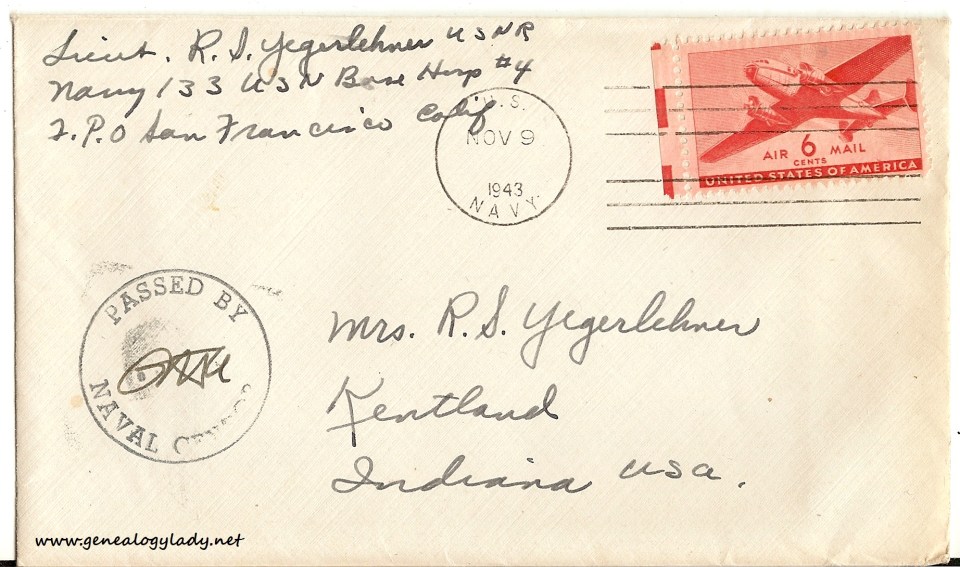 Lieut. R. S. Yegerlehner USNR
Navy 133 USN Base Hosp #4
F.P.O San Francisco Calif
U.S.
NOV 9
1943
NAVY
AIR 6 MAIL
CENTS
UNITED STATES OF AMERICA
PASSED BY
NAVAL CENSOR
Mrs. R. S. Yegerlehner
Kentland
Indiana USA.
www.genealogylady.net